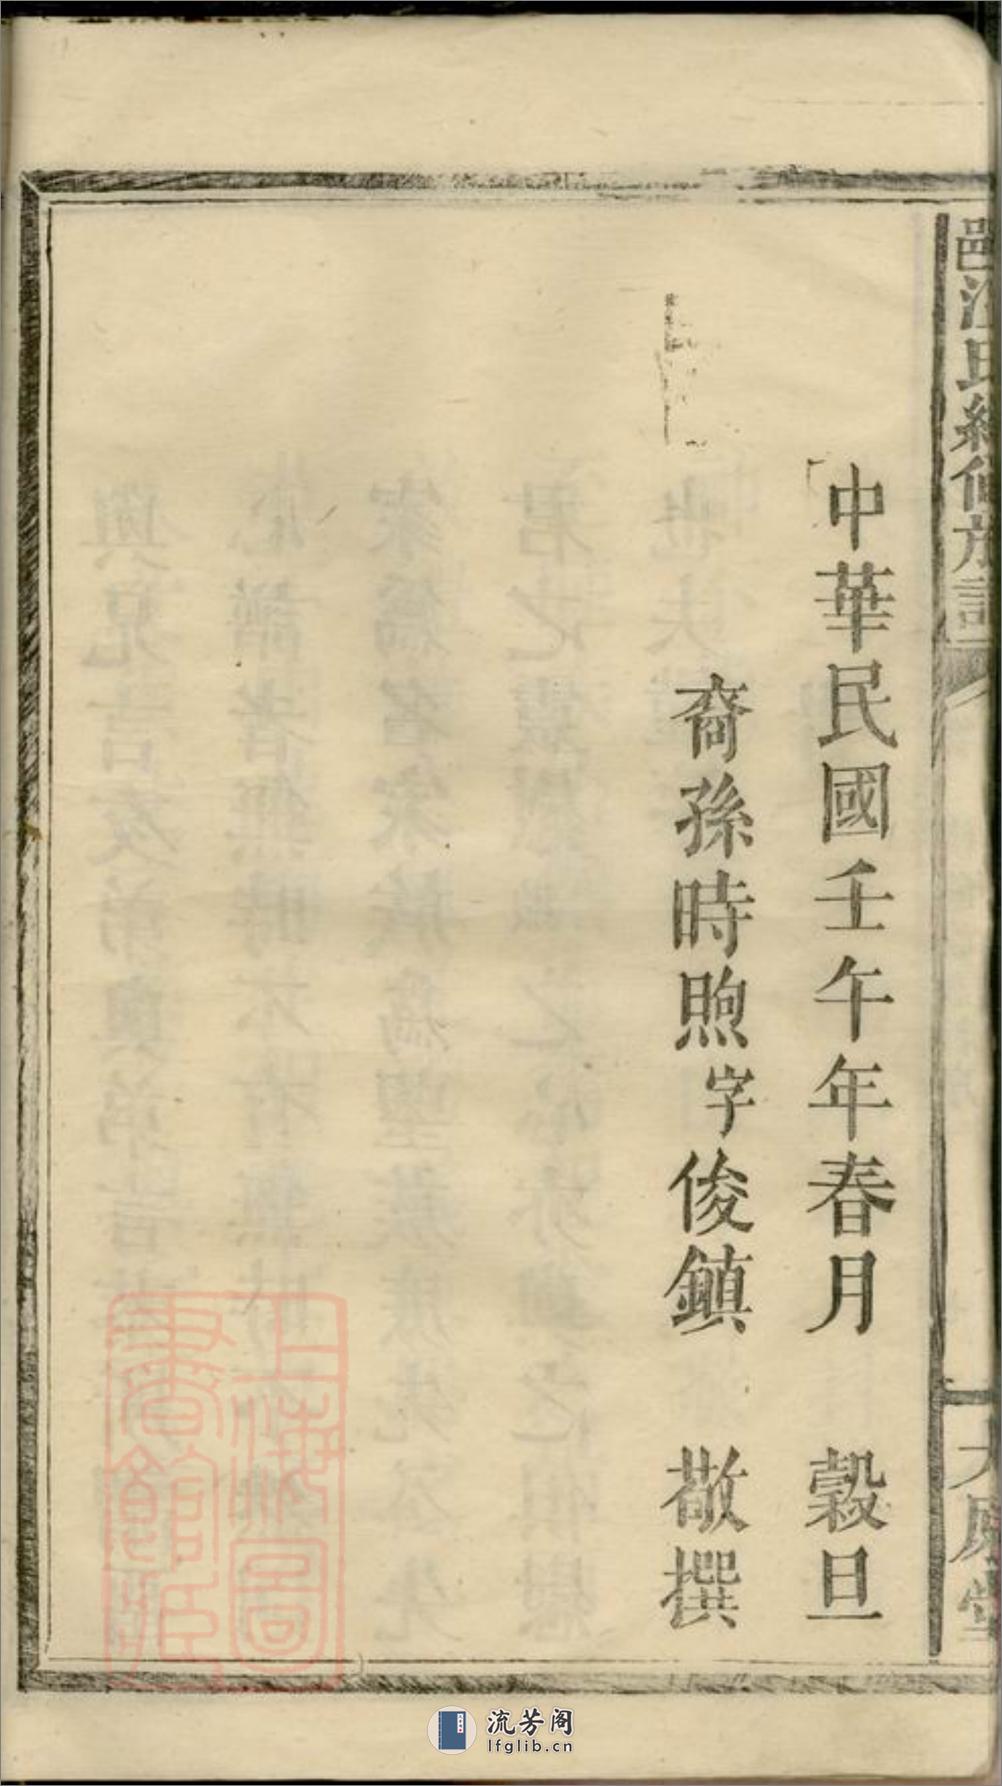 邑汪氏續修族譜
大原堂
中華民國壬午年春月 穀旦
裔孫時煦字俊鎮 敬撰
上海圖書館藏
流芳阁
lfglib.cn